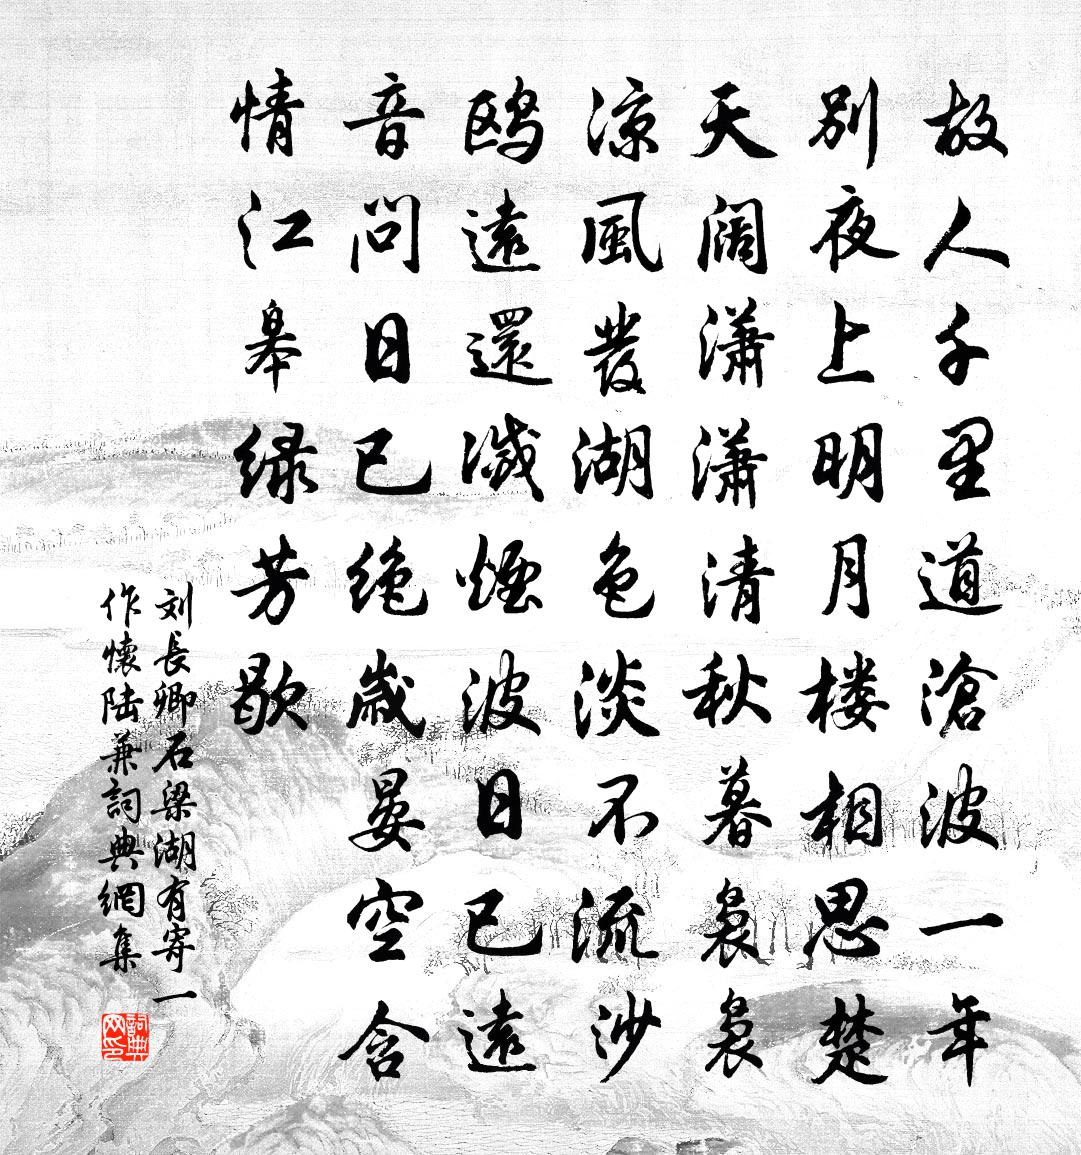 故人千里道滄波一年
別夜上明月楼相思楚
天阔瀟瀟清秋暮裊裊
涼風發湖色淡不流沙
鸥遠還滅煙波日已遠
音问日已绝歲晏空含
情江皋绿芳歇
刘長卿石梁湖有寄一
作懷陆兼詞典網集
詞典网印